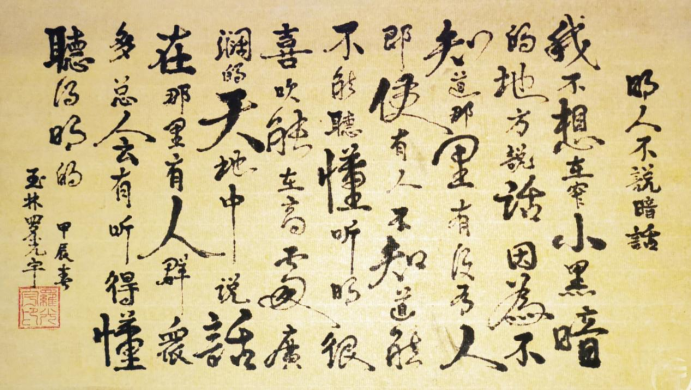 明人不說暗話
我不想在窄小黑暗
的地方說話因為不
知道那里有没有人
即使有人不知道能
不能聽懂听明很
喜欢能在高處廣
濶的天地中说話
在那里有人群眾
多总人会有听得懂
聽得明的
甲辰春
玉林羅光宇